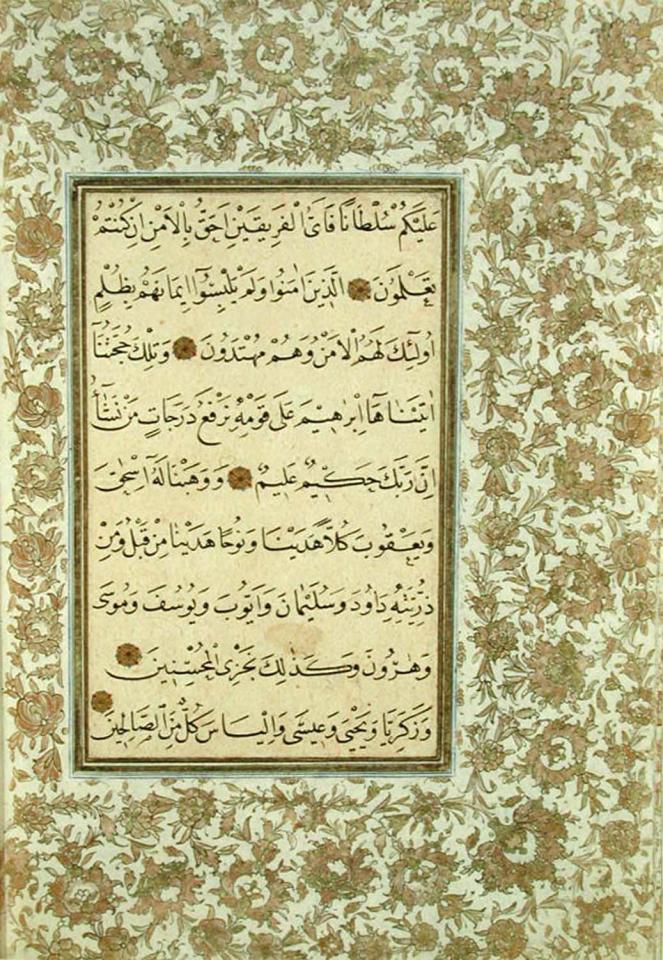 عَلَيْكُمْ سُلْطَانًا فَاَىُّ الْفَرِيقَيْنِ اَحَقُّ بِالْاَمْنِ اِنْ كُنْتُمْ
تَعْلَمُونَ الَّذِينَ اٰمَنُوا وَلَمْ يَلْبِسُوٓا اِيمَانَهُمْ بِظُلْمٍ
اُولٰٓئِكَ لَهُمُ الْاَمْنُ وَهُمْ مُهْتَدُونَ وَتِلْكَ حُجَّتُنَآ
اٰتَيْنَاهَا اِبْرٰهِيمَ عَلٰى قَوْمِهِ نَرْفَعُ دَرَجَاتٍ مَنْ نَشَآءُ
اِنَّ رَبَّكَ حَكِيمٌ عَلِيمٌ وَوَهَبْنَا لَهُٓ اِسْحٰقَ
وَيَعْقُوبَ كُلًّا هَدَيْنَا وَنُوحًا هَدَيْنَا مِنْ قَبْلُ وَمِنْ
ذُرِّيَّتِهِ دَاوُدَ وَسُلَيْمَانَ وَاَيُّوبَ وَيُوسُفَ وَمُوسٰى
وَهٰرُونَ وَكَذٰلِكَ نَجْزِى الْمُحْسِنِينَ
وَزَكَرِيَّا وَيَحْيٰى وَعِيسٰى وَاِلْيَاسَ كُلٌّ مِنَ الصَّالِحِينَ